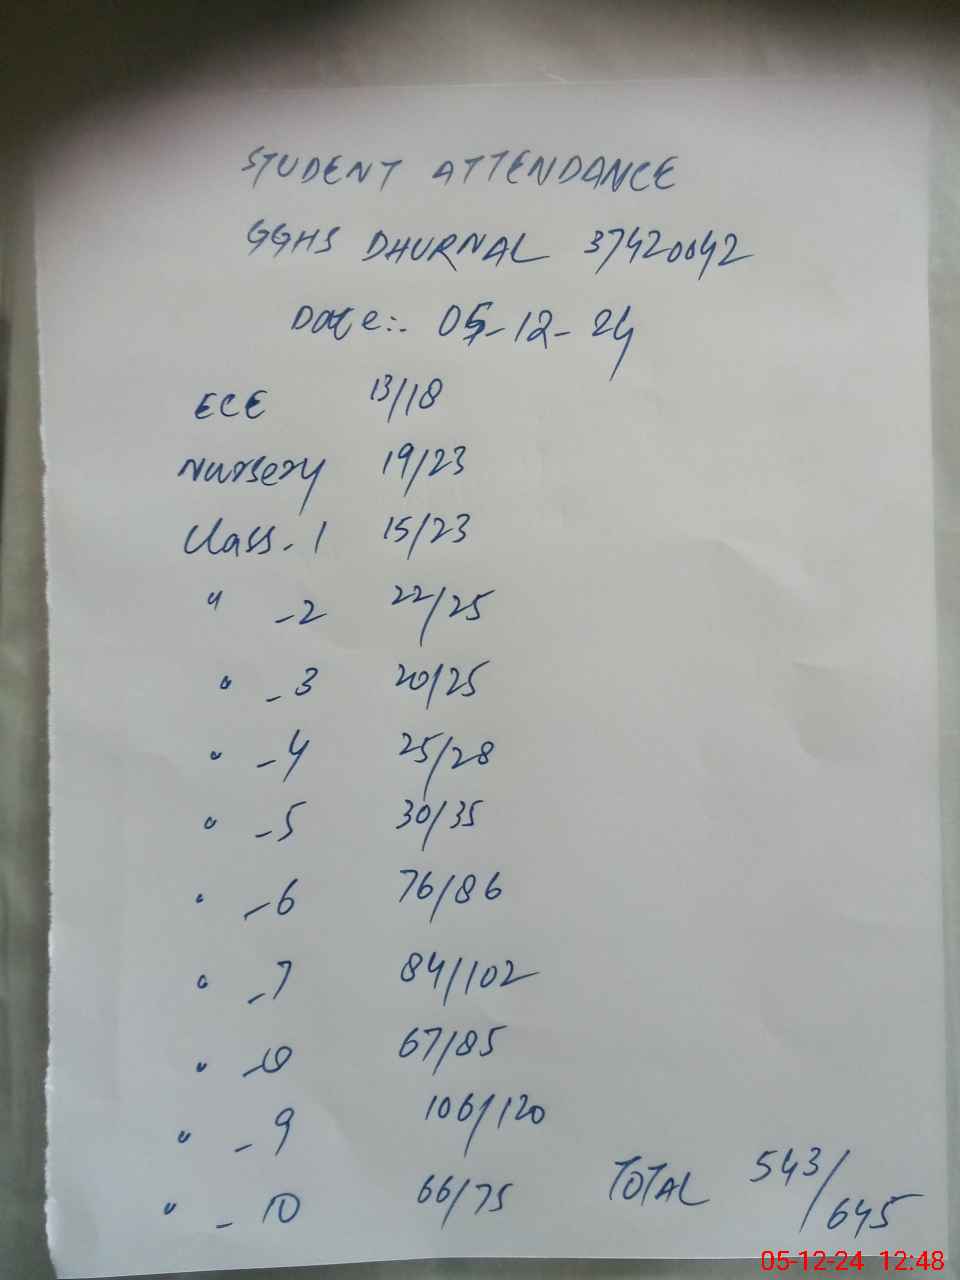 STUDENT ATTENDANCE
GGHS DHURNAL 37420042
Date:- 05-12-24
ECE 13/18
Nursery 19/23
Class-1 15/23
" -2 22/25
" -3 20/25
" -4 25/28
" -5 30/35
" -6 76/86
" -7 84/102
" -8 67/85
" -9 106/120
" -10 66/75 TOTAL 543/645
05-12-24 12:48